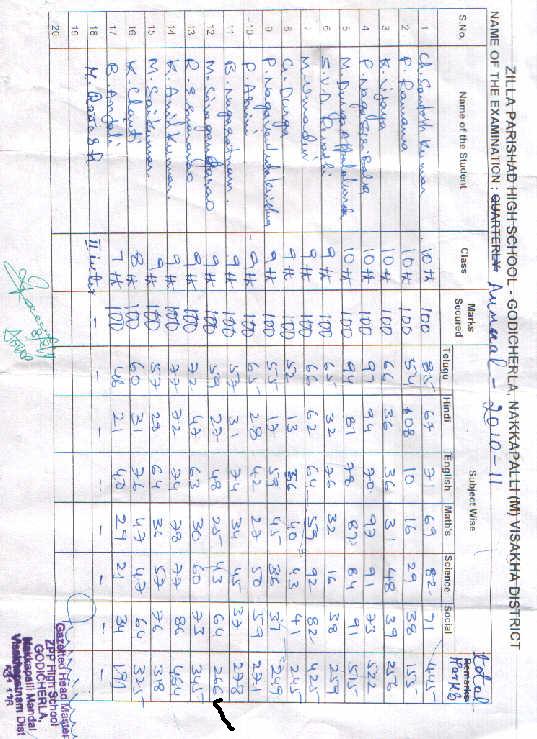 ZILLA PARISHAD HIGH SCHOOL - GODICHERLA, NAKKAPALLI (M) VISAKHA DISTRICT
NAME OF THE EXAMINATION : QUARTERLY Annual - 2010-11
S.No. Name of the Student Class Marks Secured Subject Wise Total Marks
Telugu Hindi English Maths Science Social Remarks
1 Ch. Santosh Kumar 10th 100 85 67 71 69 82 71 445
2 P. Ramana 10th 100 54 08 10 16 29 38 155
3 K. Vijaya 10th 100 66 36 36 31 48 39 256
4 P. Naga Sesi Raju 10th 100 97 94 70 97 91 73 522
5 M. Durga 10th 100 94 81 78 87 84 91 515
6 S.V.D. 9th 100 65 32 76 32 16 38 259
7 M. Umadevi 9th 100 66 62 64 59 92 82 425
8 Ch. Durga 9th 100 52 13 56 40 43 41 245
9 P. 9th 100 55 17 59 45 36 37 249
10 P. 9th 100 65 28 42 27 50 59 271
11 B. Nagaratnam 9th 100 57 31 74 34 45 37 278
12 M. Sivaganga Rao 9th 100 59 27 48 25 43 64 266
13 R. 9th 100 72 47 63 30 60 73 345
14 K. Anil Kumar 9th 100 77 72 74 78 77 86 464
15 M. Sai Kumar 9th 100 57 29 64 36 53 76
16 K. Chanti 8th 100 60 31 76 47 47 64 325
17 B. Anjali 7th 100 48 21 40 29 21 34 191
18 II inter - - - - - - -
19
20
Gazetted Head Master
ZPP High School
GODICHERLA,
Nakkapalli Mandal
Visakhapatnam Dist